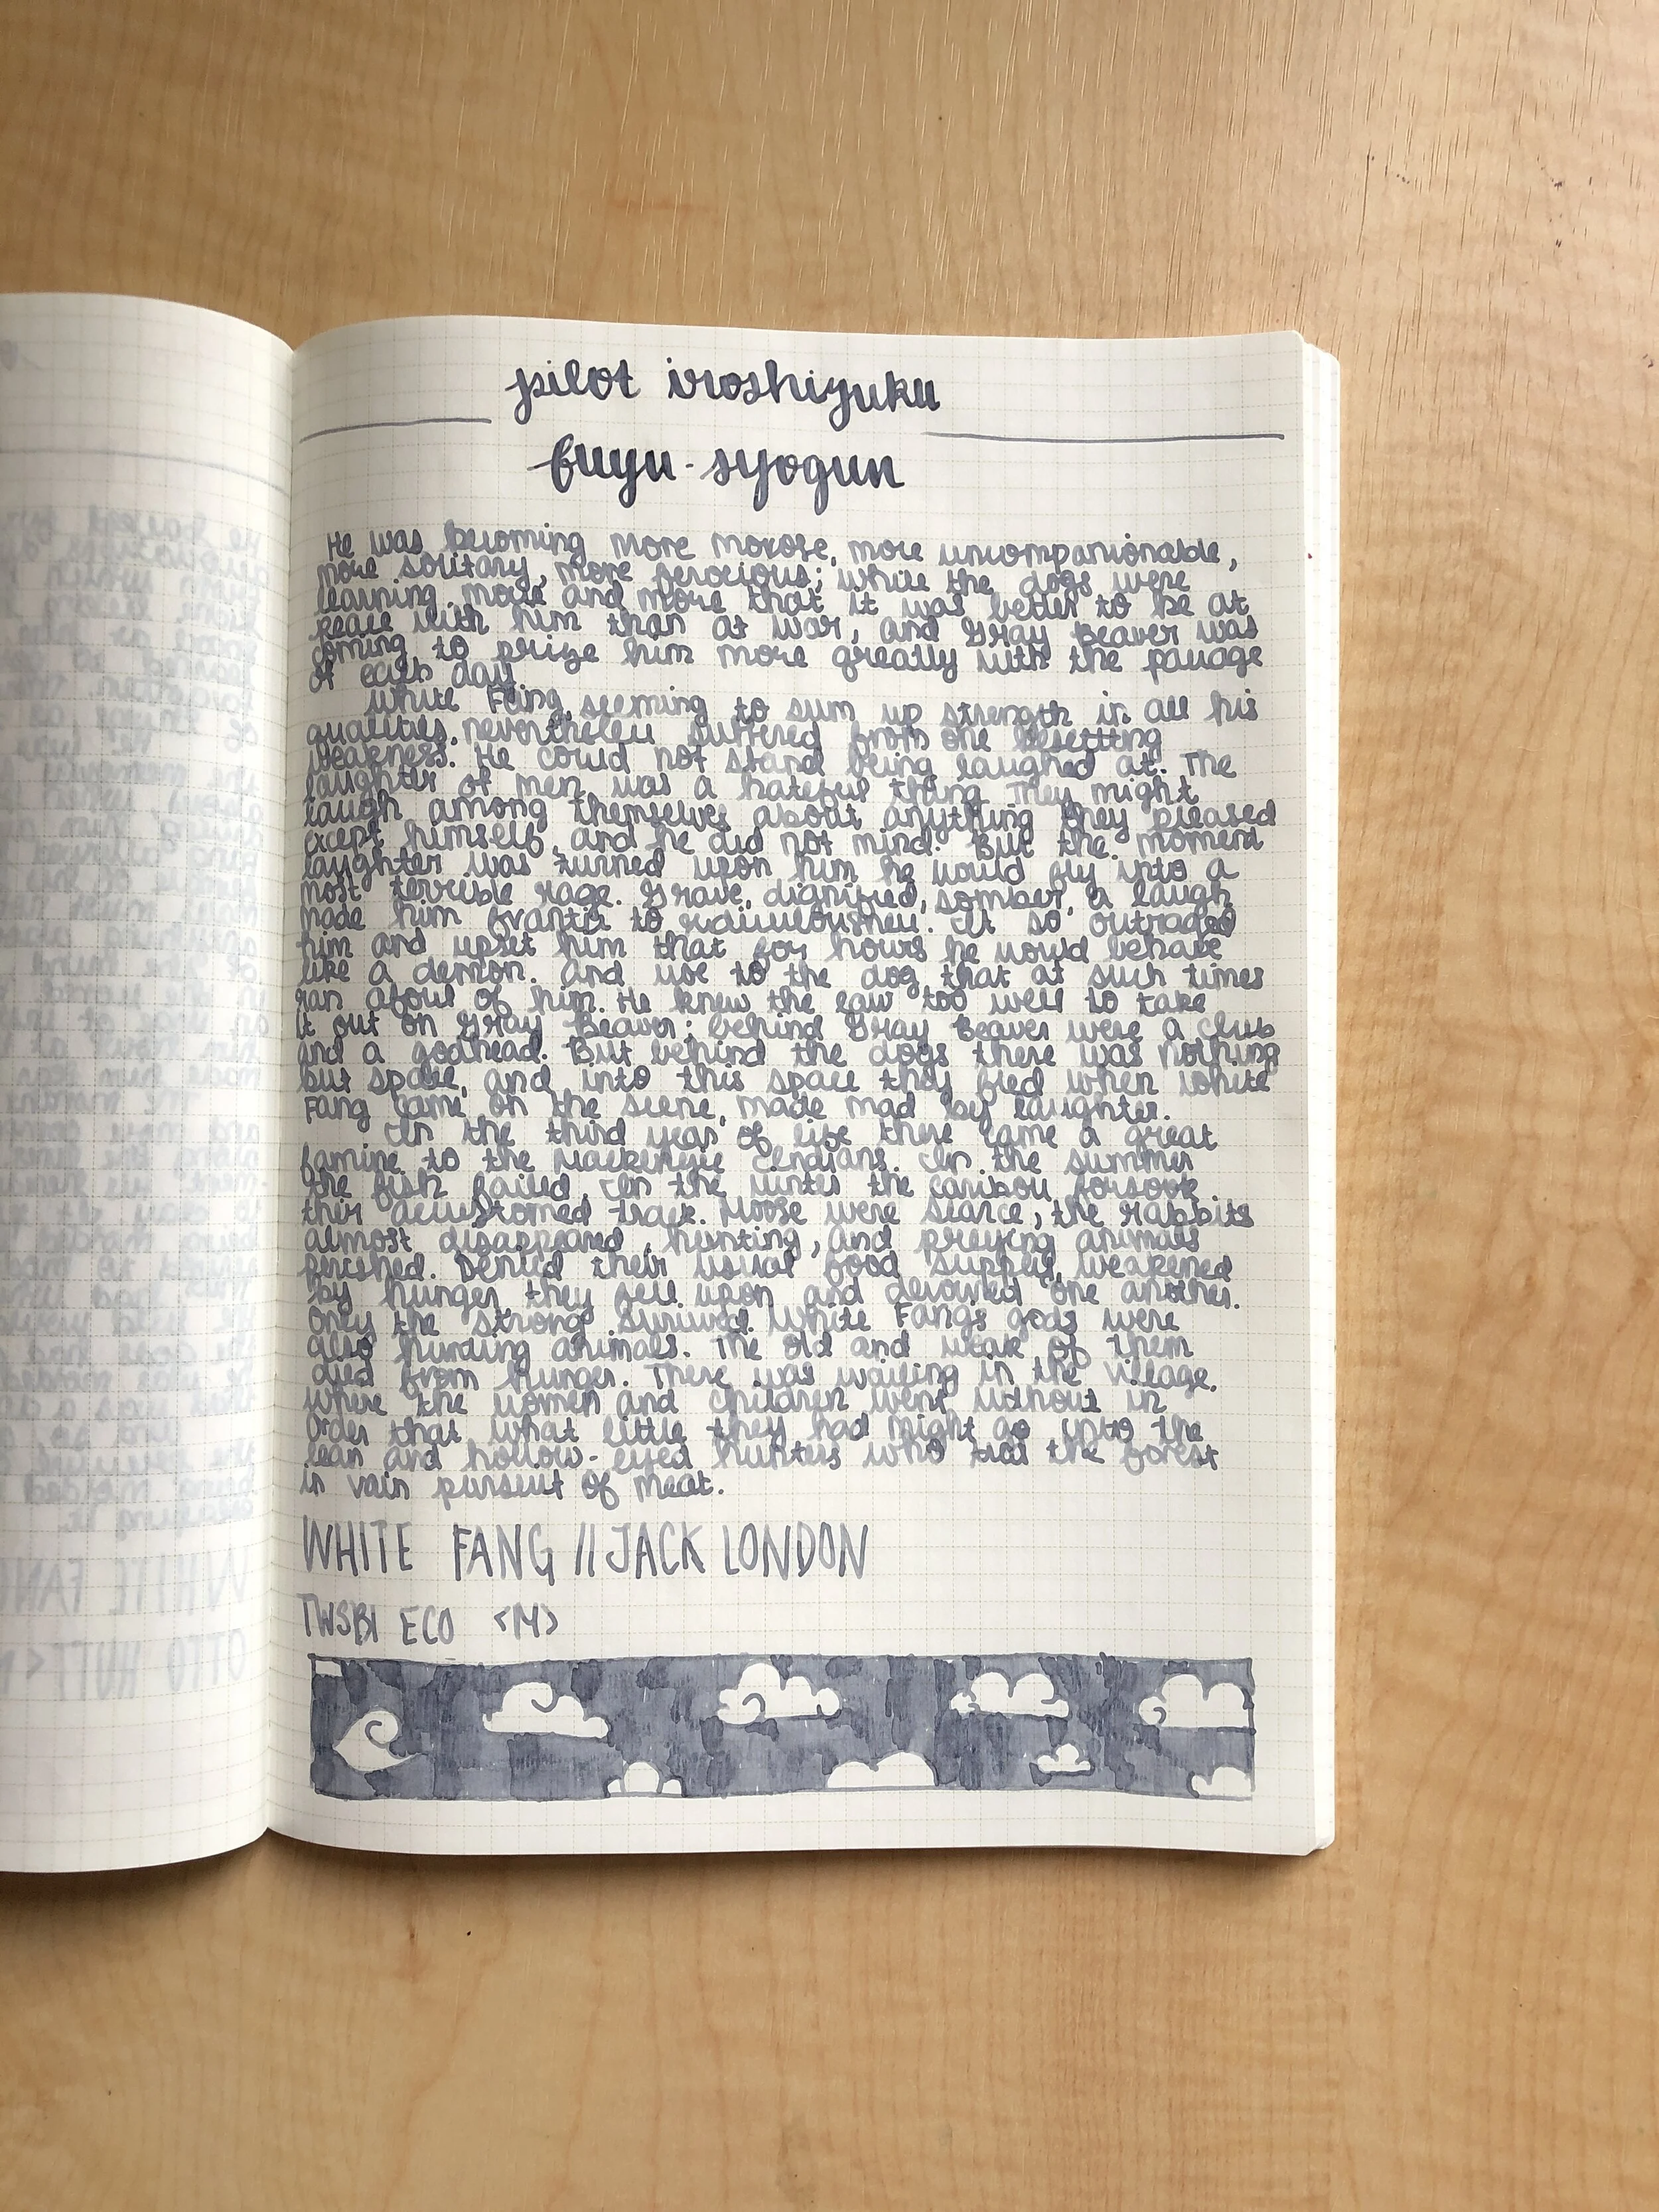 pilot iroshizuku
fuyu-syogun
He was becoming more morose, more uncompanionable,
more solitary, more ferocious; while the dogs were
learning more and more that it was better to be at
peace with him than at war, and Gray Beaver was
coming to prize him more greatly with the passage
of each day.
White Fang, seeming to sum up strength in all his
qualities, nevertheless suffered from one besetting
weakness. He could not stand being laughed at. The
laughter of men was a hateful thing. They might
laugh among themselves about anything they pleased
except himself, and he did not mind. But the moment
laughter was turned upon him he would fly into a
most terrible rage. Grave, dignified, somber, a laugh
made him frantic to ridiculousness. It so outraged
him and upset him that for hours he would behave
like a demon. And woe to the dog that at such times
ran afoul of him. He knew the law too well to take
it out on Gray Beaver; behind Gray Beaver were a club
and a godhead. But behind the dogs there was nothing
but space, and into this space they fled when White
Fang came on the scene, made mad by laughter.
In the third year of life there came a great
famine to the Mackenzie Indians. In the summer
the fish failed. In the winter the caribou forsook
their accustomed track. Moose were scarce, the rabbits
almost disappeared, hunting, and preying animals
perished. Denied their usual food supply, weakened
by hunger, they fell upon and devoured one another.
Only the strong survived. White Fang's gods were
also hunting animals. The old and weak of them
died from hunger. There was wailing in the village,
where the women and children went without in
order that what little they had might go into the
lean and hollow-eyed hunters who trod the forest
in vain pursuit of meat.
WHITE FANG // JACK LONDON
TWSBI ECO <M>